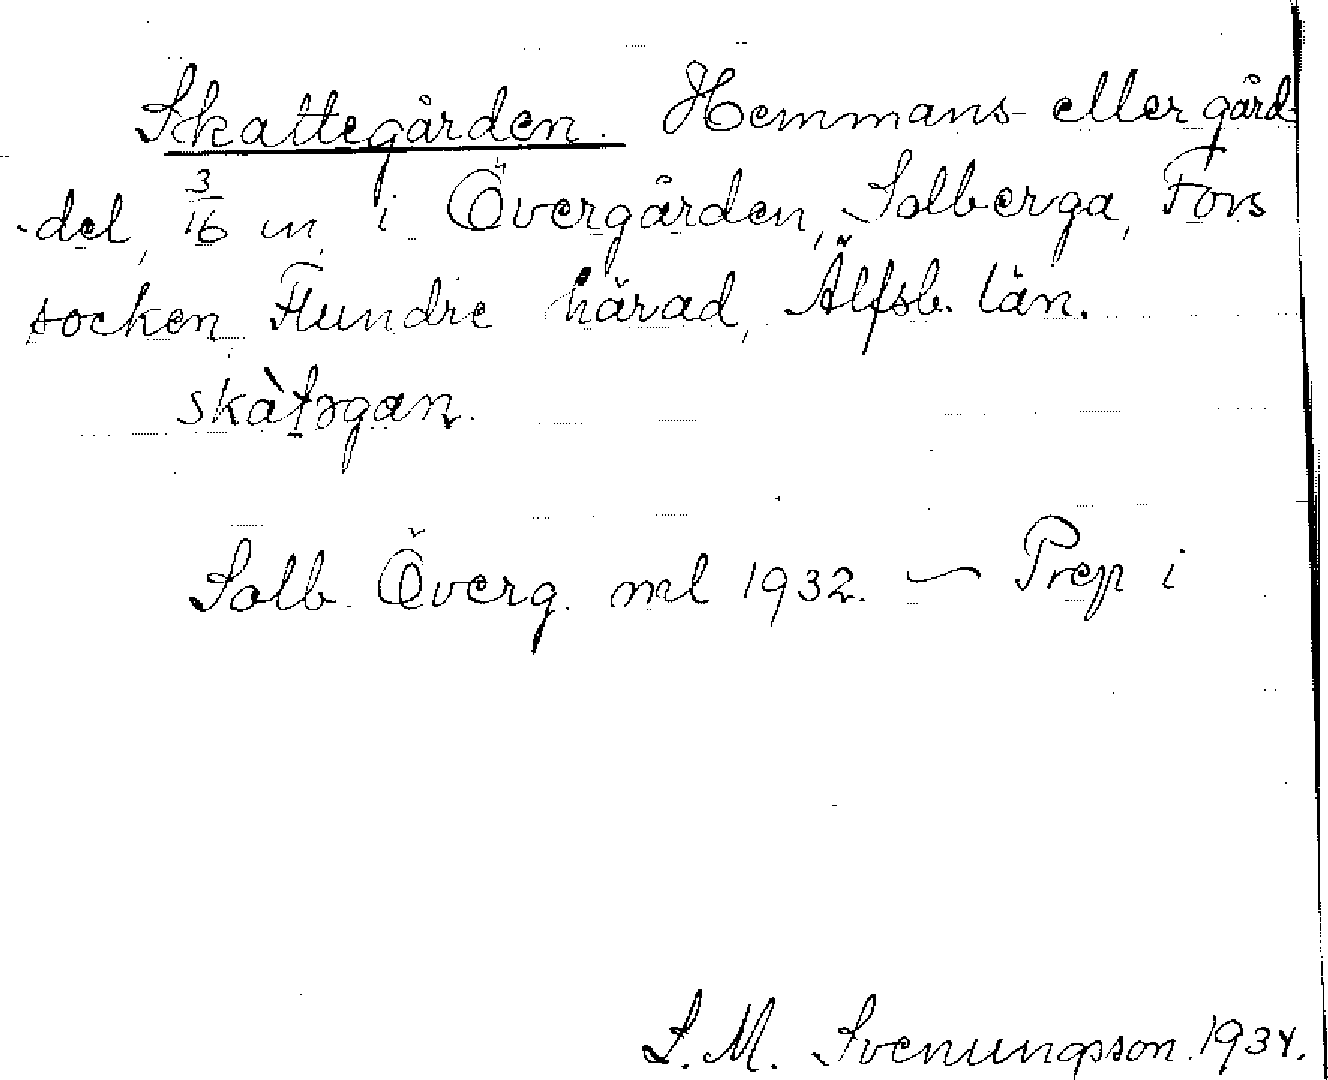 Skattegården. Hemmans- eller gård-
-del, 3/16 m, i Övergården, Solberga, Fors
socken Flundre härad, Älfsb. län.
skàtrgan.
Solb. Överg. ml 1932. — Prep i
S. M. Svenungsson. 1934.